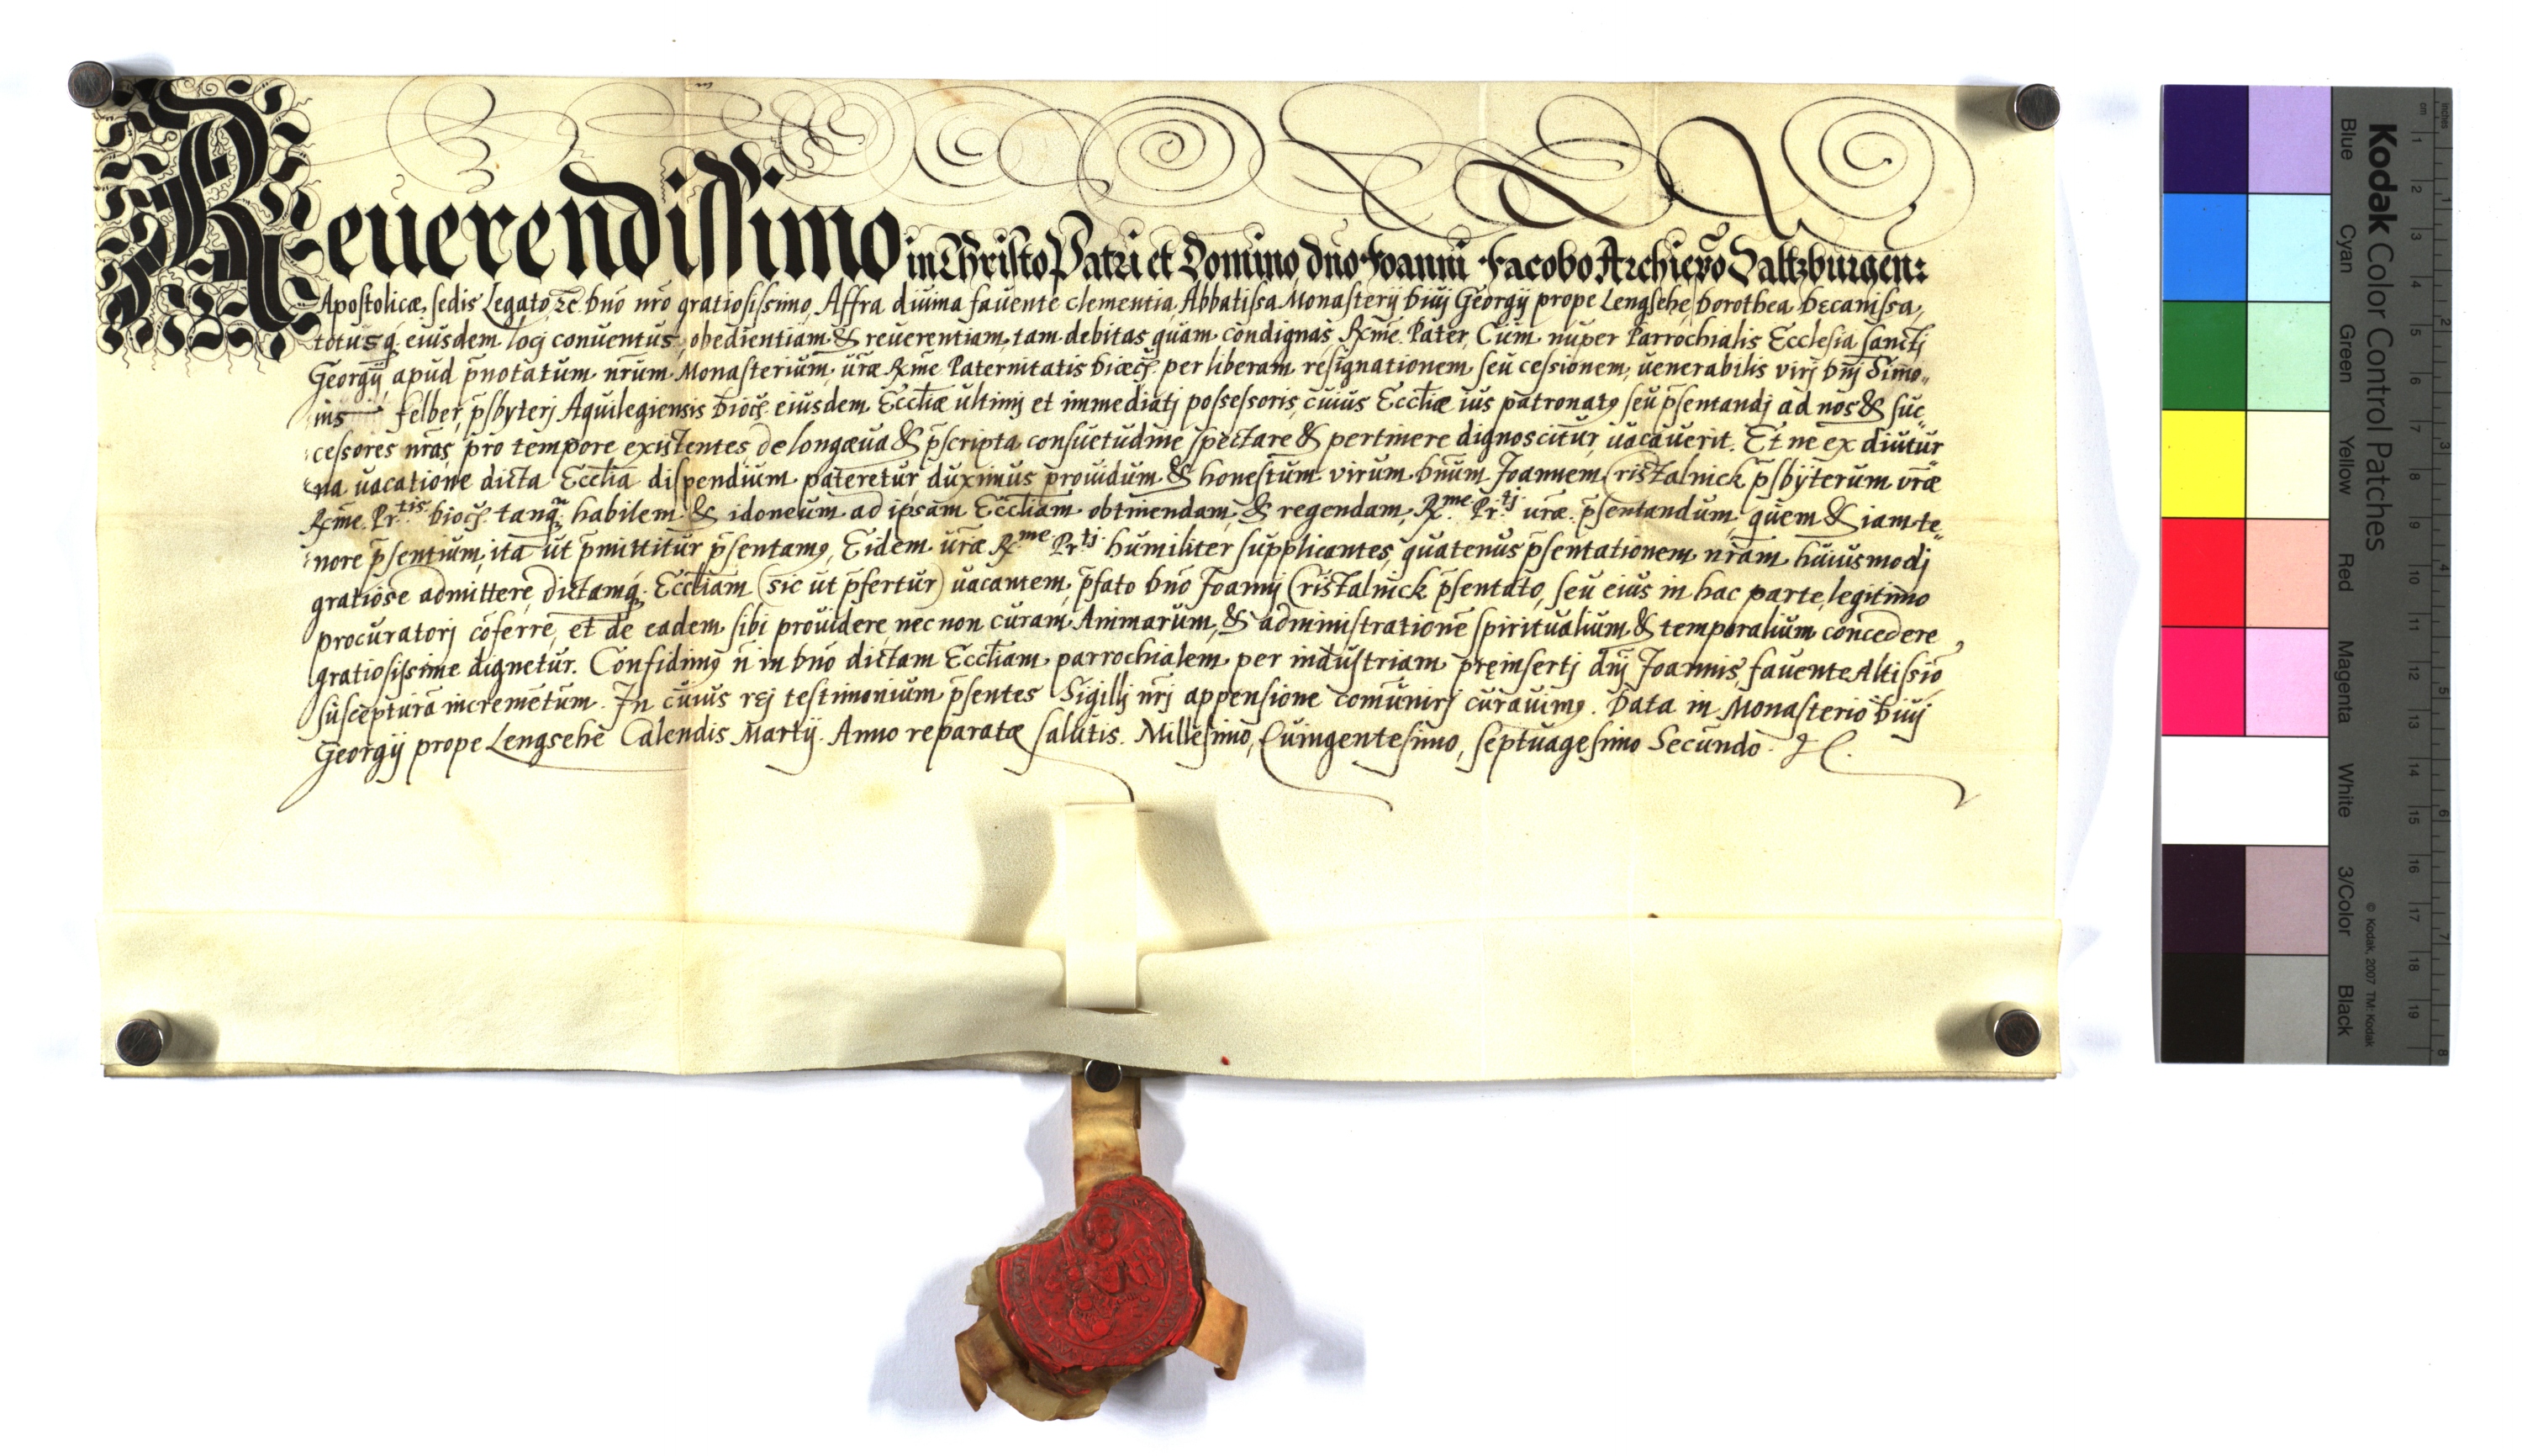 Reuerendissimo in Christo Patri et Domino, dno Joanni Jacobo Archiep̄o Saltzburgen:
Apostolicæ sedis Legato ꝛc. Dn̄o nr̄o gratiosissimo, Affra diuina fauente clementia, Abbatissa Monasterij Diuj Georgij prope Lengsehe, Dorothea Decanissa,
totusq̄ eiusdem locj conuentus, obedientiam & reuerentiam, tam debitas quam condignas, Rc̄me. Pater, Cum nuper Parrochialis Ecclesia Sanctj
Georgij, apud p̄notatum nr̄um Monasterium, ur̄æ Rc̄me Paternitatis Dioecs̄. per liberam resignationem seu cessionem, uenerabilis virj Dn̄j Simo„
nis Felber, p̄sbyterj Aquilegiensis Dioecs̄. eiusdem Eccl̄iæ ultimj et immediatj possessoris, cuius Eccl̄iæ ius patronatꝯ seu p̄sentandj ad nos & suc„
cessores nr̄as, pro tempore existentes, de longæua & p̄scripta consuetudine spectare & pertinere dignoscitur, uacauerit. Et ne ex diutur„
na uacatione dicta Eccl̄ia dispendium pateretur, duximus prouidum & honestum virum Dn̄um Joannem Cristalnick p̄sbyterum vr̄æ
Rc̄me. Pr.tis Dioecs̄. tanq̄ habilem & idoneum ad ipsam Eccl̄iam obtinendam & regendam, R.me Pr.tj ur̄æ. p̄sentandum, quem & iam te„
nore p̄sentium, ita ut p̄mittitur p̄sentamꝯ, Eidem ur̄æ R.me Pr.tj humiliter supplicantes, quatenus p̄sentationem nr̄am huiusmodj
gratiose admittere, dictamq̄ Eccl̄iam (sic ut p̄fertur) uacantem, p̄fato Dn̄o Joannj Cristalnick p̄sentato, seu eius in hac parte, legitimo
procuratorj cōferre, et de eadem sibi prouidere, nec non curam Animarum, & administrationē spiritualium & temporalium concedere
gratiosissime dignetur. Confidimꝯ n̄ in Dn̄o dictam Eccl̄iam parrochialem per industriam p̨insertj dn̄j Joannis, fauente Altissīo
susceptura incremētum. In cuius rej testimonium p̄sentes Sigillj nr̄j appensione com̄unirj curauimꝯ. Data in Monasterio Diuj
Georgij prope Lengsehe Calendis Martij. Anno reparatæ salutis. Millesimo, Quingentesimo, septuagesimo Secundo.
Kodak Color Control Patches
Blue Cyan Green Yellow Red Magenta White 3/Color Black
© Kodak, 2007 TM: Kodak
inches 1 2 3 4 5 6 7 8
cm 1 2 3 4 5 6 7 8 9 10 11 12 13 14 15 16 17 18 19